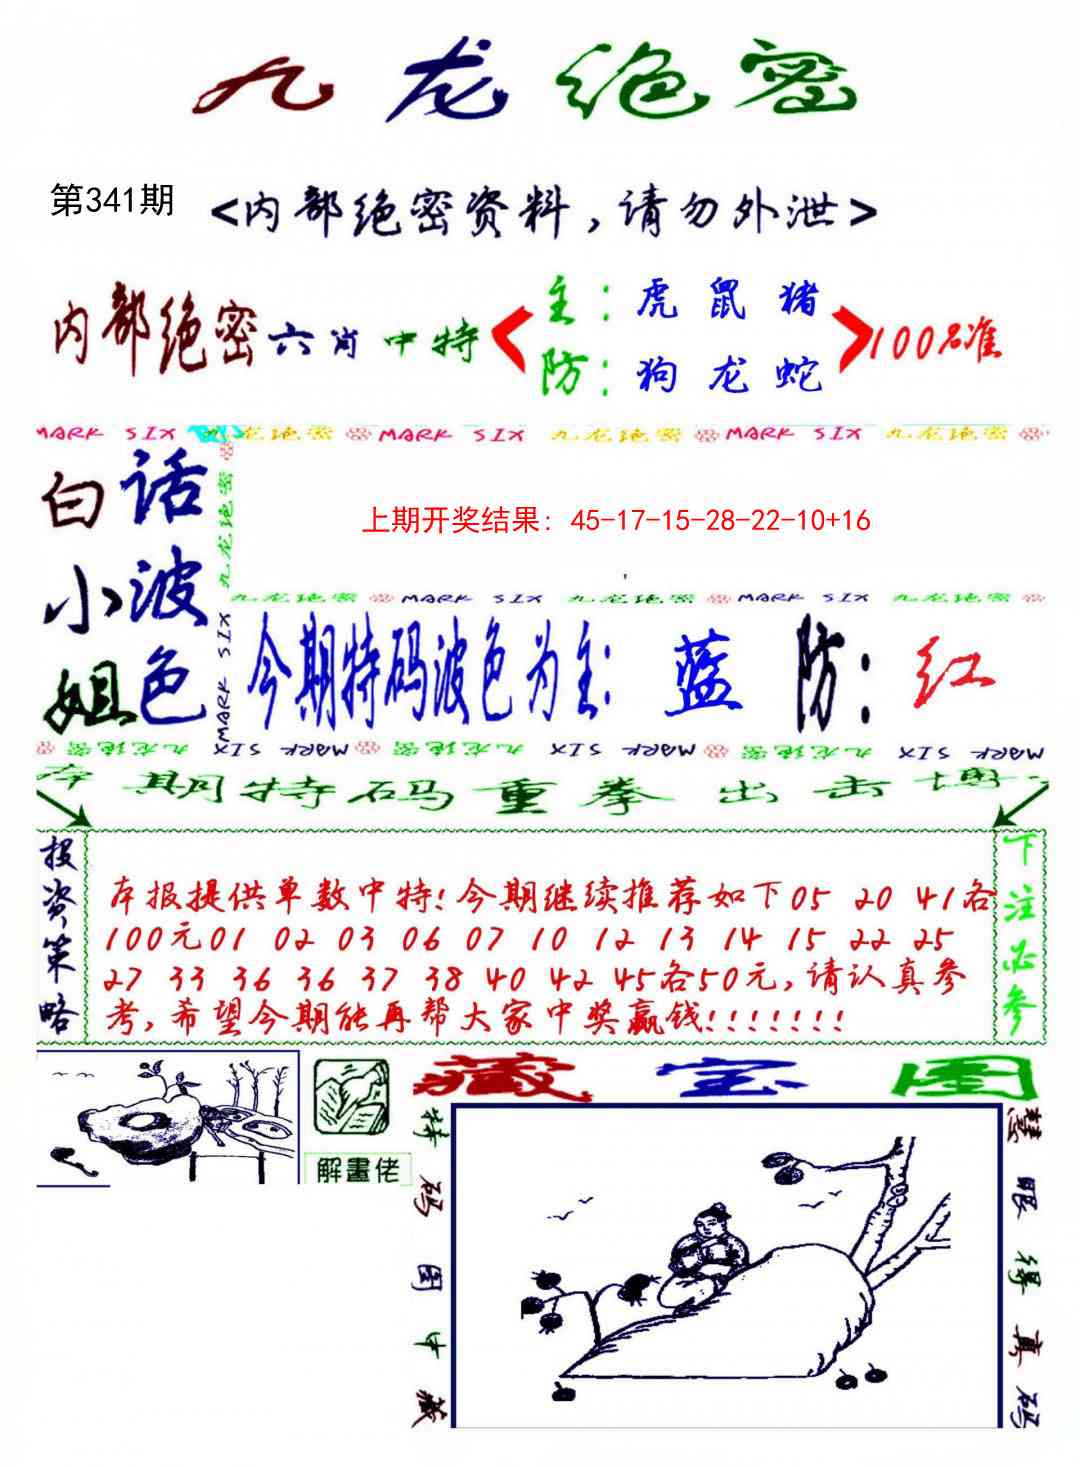 九龙绝密
第341期
<内部绝密资料，请勿外泄>
内部绝密六肖中特
主：虎 鼠 猪
防：狗 龙 蛇
100%准
MARK SIX 九龙绝密 MARK SIX 九龙绝密 MARK SIX 九龙绝密
白小姐
话波色
九龙绝密
MARK SIX
上期开奖结果: 45-17-15-28-22-10+16
九龙绝密 MARK SIX 九龙绝密 MARK SIX 九龙绝密
今期特码波色为主: 蓝 防: 红
九龙绝密 MARK SIX 九龙绝密 MARK SIX 九龙绝密 MARK SIX
本期特码重拳出击博
投资策略
本报提供单数中特!今期继续推荐如下05 20 41各
100元01 02 03 06 07 10 12 13 14 15 22 25
27 33 36 36 37 38 40 42 45各50元,请认真参
考,希望今期能再帮大家中奖赢钱!!!!!!!
下注必参
解畫佬
藏宝图
特码图中藏
慧眼得真码